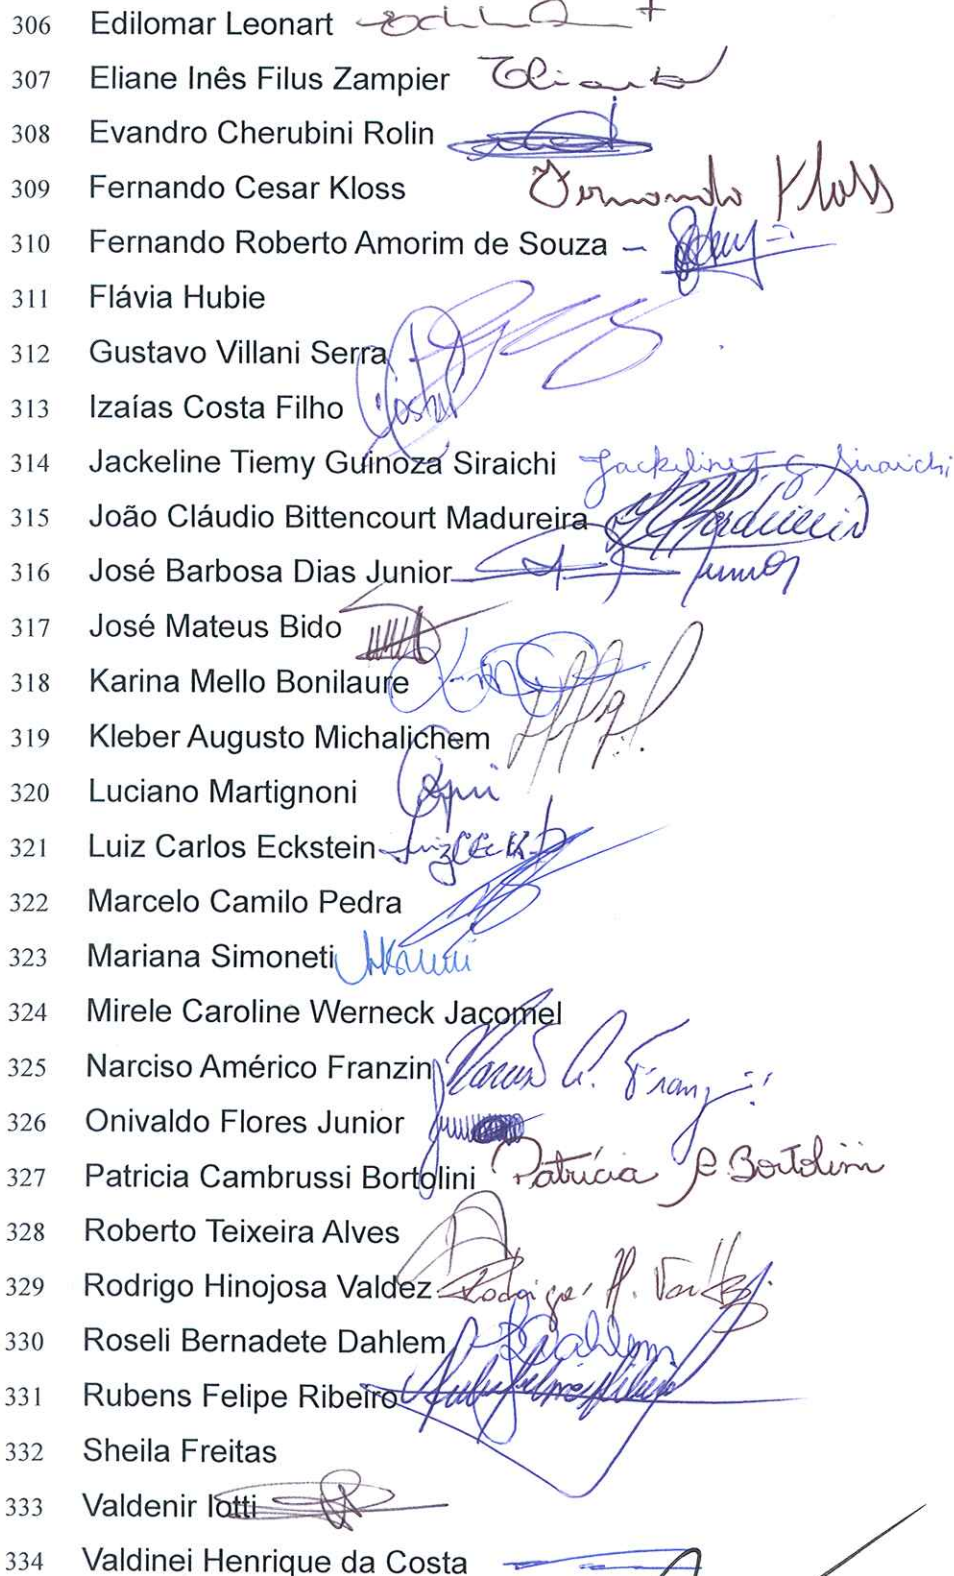 306 Edilomar Leonart
307 Eliane Inês Filus Zampier
308 Evandro Cherubini Rolin
309 Fernando Cesar Kloss Fernando Kloss
310 Fernando Roberto Amorim de Souza –
311 Flávia Hubie
312 Gustavo Villani Serra
313 Izaías Costa Filho Costa
314 Jackeline Tiemy Guinoza Siraichi Jackeline T. G. Siraichi
315 João Cláudio Bittencourt Madureira
316 José Barbosa Dias Junior Junior
317 José Mateus Bido
318 Karina Mello Bonilaure
319 Kleber Augusto Michalichem
320 Luciano Martignoni
321 Luiz Carlos Eckstein
322 Marcelo Camilo Pedra
323 Mariana Simoneti
324 Mirele Caroline Werneck Jacomel
325 Narciso Américo Franzin
326 Onivaldo Flores Junior
327 Patricia Cambrussi Bortolini Patrícia C. Bortolini
328 Roberto Teixeira Alves
329 Rodrigo Hinojosa Valdez
330 Roseli Bernadete Dahlem RBDahlem
331 Rubens Felipe Ribeiro
332 Sheila Freitas
333 Valdenir Iotti
334 Valdinei Henrique da Costa